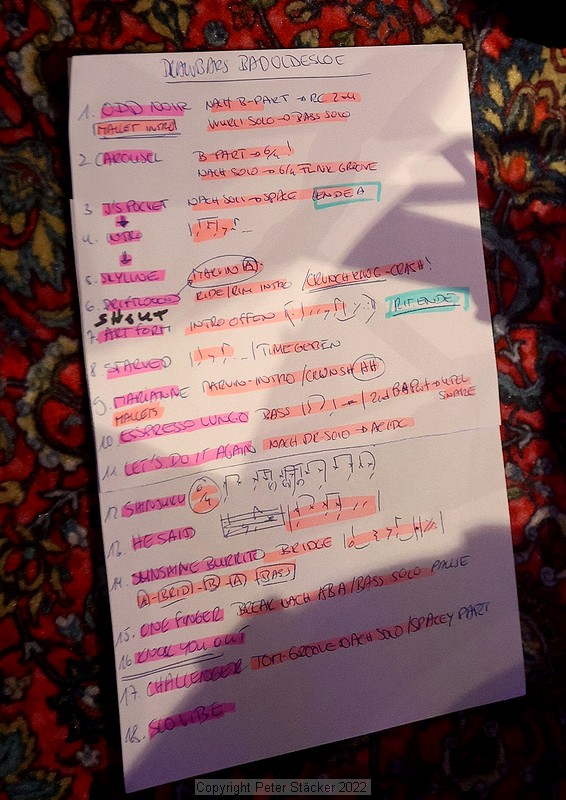 DRAWBARS BADOLDESLOE
1. ODD NOIR NACH B-PART → RC 2+4
MALLET INTRO WURLI SOLO → BASS SOLO
2. CAROUSEL B-PART → 6/4!
NACH SOLO → 6/4 FUNK GROOVE
3. J'S POCKET NACH SOLI → SPACE ENDE A
4. INTRO
5. SKYLINE MARVIN A
6. DRIFTWOOD RIDE/RIM INTRO / CRUNCH KNOC-CRASH!
SHOUT
7. ART FORM INTRO OFFEN RIFENDE
8. STARVED TIME GEBEN
9. MARIANNE MARVIN-INTRO / CRUNSH AH
MALLETS
10 ESPRESSO LUNGO BASS 2nd BPART →
SNARE
11 LET'S DO IT AGAIN NACH DR-SOLO → ACIDC
12. SHINJUKU 6/4
13. HE SAID
14. SUNSHINE BURRITO BRIDGE
A-BRID-B-A BASS
15. ONE FINGER BREAK NACH ABA / BASS SOLO PAUSE
16 KNOCK YOU OUT
17. CHALLENGER TOM-GROOVE NACH SOLO / SPACEY PART
18. SLOVIBE
Copyright Peter Stäcker 2022